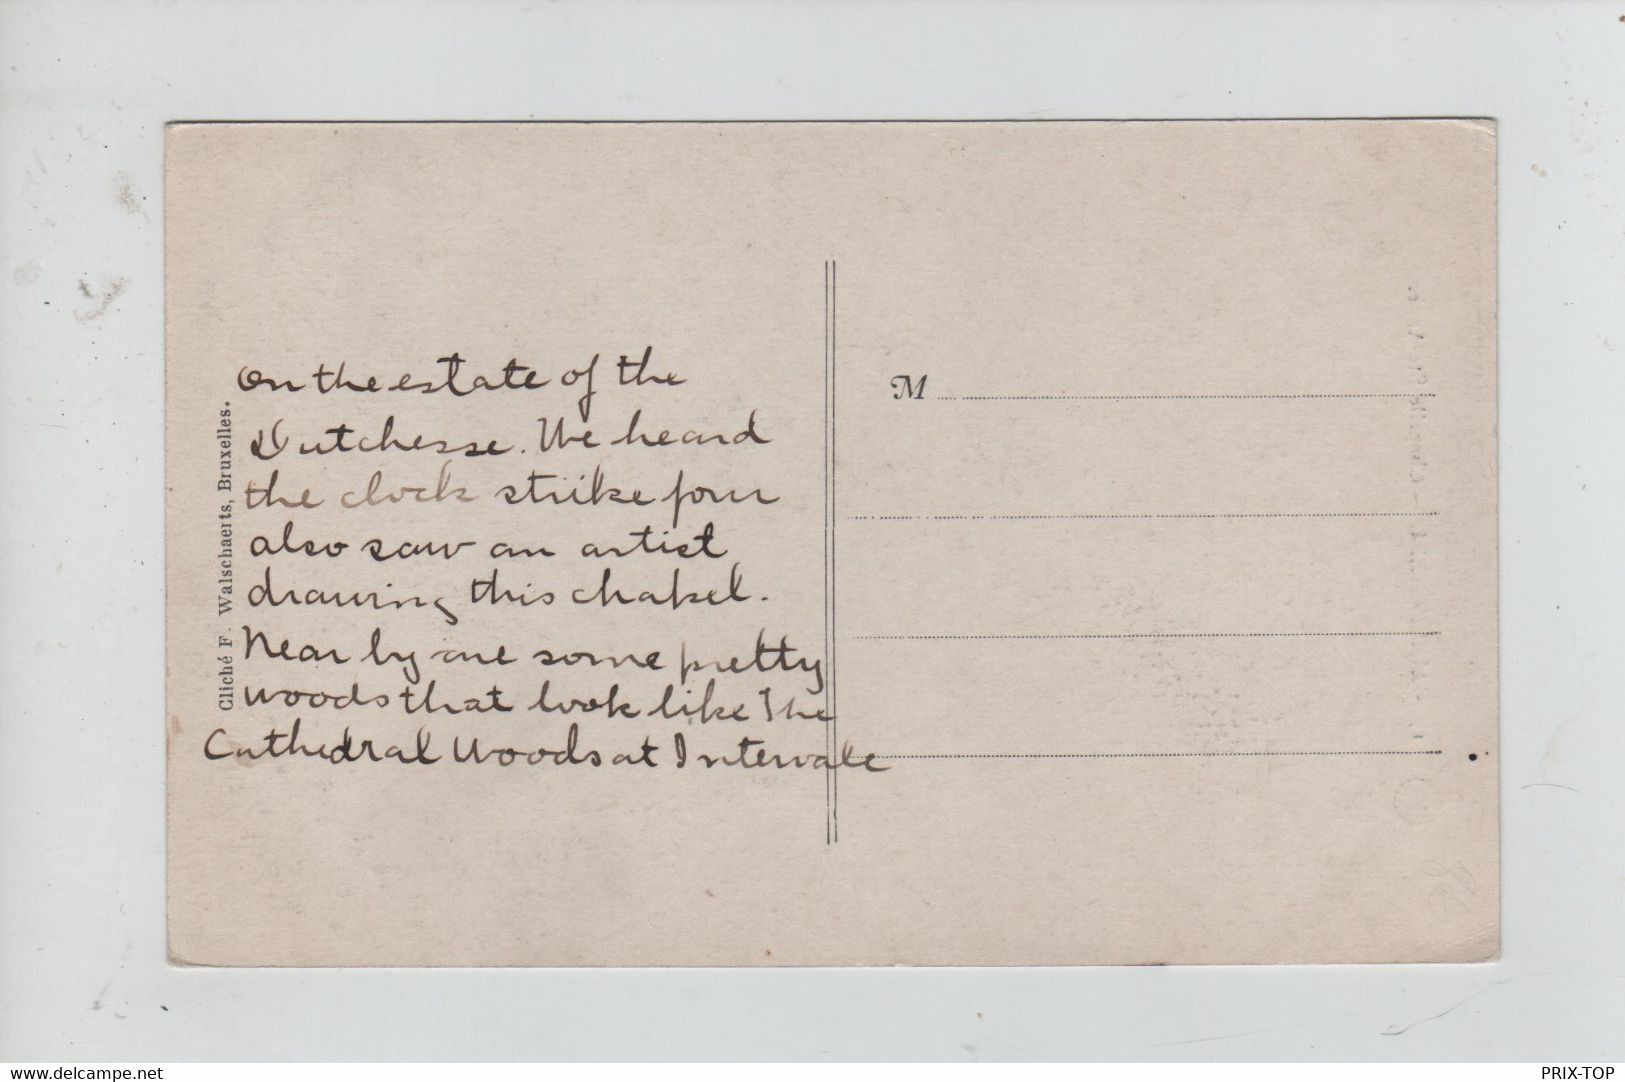 On the estate of the
Dutchesse. We heard
the clock strike four
also saw an artist
drawing this chapel.
Near by are some pretty
woods that look like The
Cathedral Woods at Intervale
Cliché F. Walschaerts, Bruxelles.
M
www.delcampe.net
PRIX-TOP